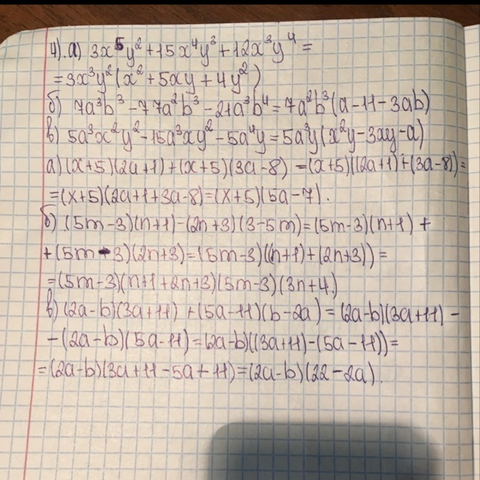 4). а) 3x⁵y²+15x⁴y³+12x³y⁴=
=3x³y²(x²+5xy+4y²)
б) 7a³b³-77a²b³-21a³b⁴=7a²b³(a-11-3ab)
в) 5a³x²y²-15a³xy²-5a⁴y=5a³y(x²y-3xy-a)
а) (x+5)(2a+1)+(x+5)(3a-8)=(x+5)((2a+1)+(3a-8))=
=(x+5)(2a+1+3a-8)=(x+5)(5a-7).
б) (5m-3)(n+1)-(2n+3)(3-5m)=(5m-3)(n+1)+
+(5m-3)(2n+3)=(5m-3)((n+1)+(2n+3))=
=(5m-3)(n+1+2n+3)(5m-3)(3n+4)
в) (2a-b)(3a+11)+(5a-11)(b-2a)=(2a-b)(3a+11)-
-(2a-b)(5a-11)=(2a-b)((3a+11)-(5a-11))=
=(2a-b)(3a+11-5a+11)=(2a-b)(22-2a).